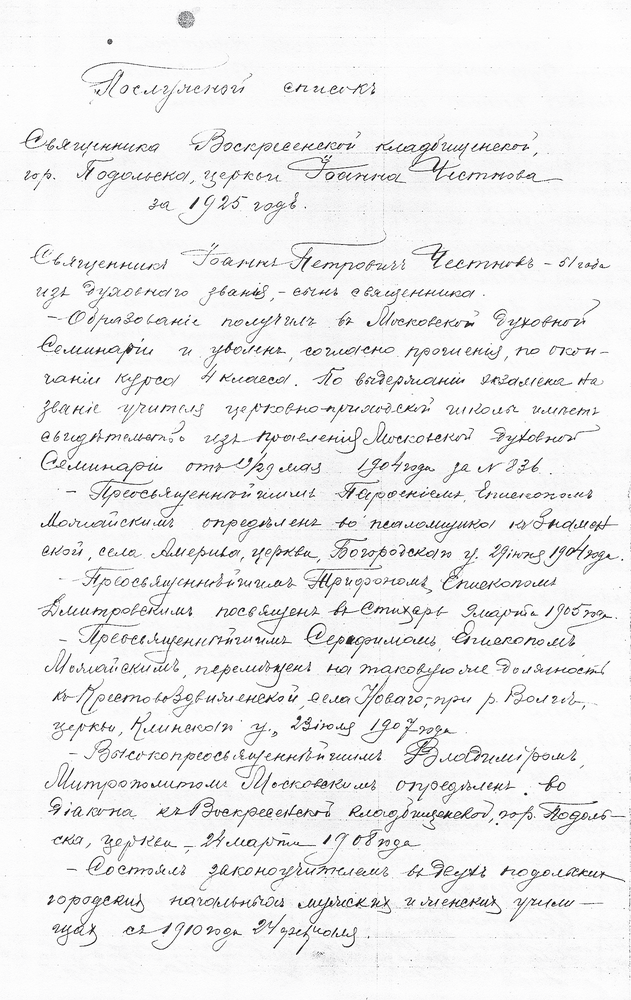 Послужной списокъ
Священника Воскресенской кладбищенской,
гор. Подольска, церкви Іоанна Честнова
за 1925 годъ.
Священникъ Іоаннъ Петровичъ Честновъ – 51 года
изъ духовнаго званія, – сынъ священника.
– Образованіе получилъ въ Московской Духовной
Семинаріи и уволенъ, согласно прошенія, по окон-
чаніи курса 4 класса. По выдержаніи экзамена на
званіе учителя церковно-приходской школы имѣетъ
свидѣтельство изъ Правленія Московской Духовной
Семинаріи отъ 19/29 мая 1904 года за № 836.
– Преосвященнѣйшимъ Парѳеніемъ, Епископомъ
Можайскимъ опредѣленъ во псаломщика къ Знамен
ской, села Америва, церкви, Богородскаго у. 29 іюня 1904 года.
– Преосвященнѣйшимъ Трифономъ, Епископомъ
Дмитровскимъ посвященъ въ Стихарь 9 марта 1905 года.
– Преосвященнѣйшимъ Серафимомъ, Епископомъ
Можайскимъ, перемѣщенъ на таковую же должность
къ Крестовоздвиженской, села Новаго, при р. Волгѣ,
церкви, Клинскаго у., 23 іюля 1907 года.
– Высокопреосвященнѣйшимъ Владиміромъ,
Митрополитомъ Московскимъ опредѣленъ во
діакона къ Воскресенской кладбищенской, гор. Подоль-
ска, церкви – 24 марта 1908 года
– Состоялъ законоучителемъ въ двухъ подольскихъ
городскихъ начальныхъ мужскихъ и женскихъ учили-
щахъ съ 1910 года 24 февраля.